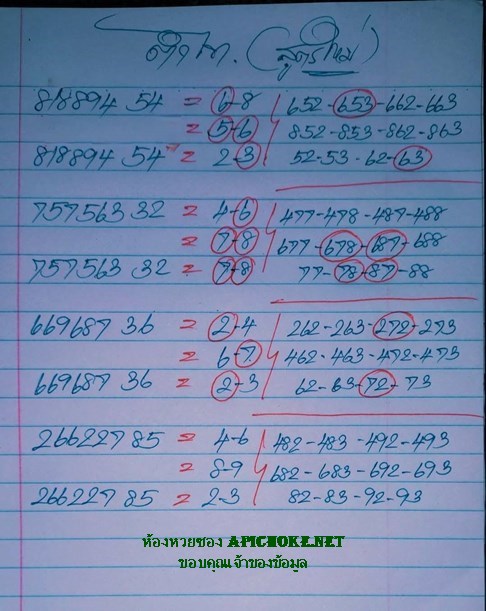 (สูตรใหม่)
818894 54 = 6-8 652-653-662-663
= 5-6 852-853-862-863
818894 54 = 2-3 52-53-62-63
757563 32 = 4-6 477-478-487-488
= 7-8 677-678-687-688
757563 32 = 7-8 77-78-87-88
669687 36 = 2-4 262-263-272-273
= 6-7 462-463-472-473
669687 36 = 2-3 62-63-72-73
266227 85 = 4-6 482-483-492-493
= 8-9 682-683-692-693
266227 85 = 2-3 82-83-92-93
ห้องหวยซอง APICHOKE.NET
ขอบคุณเจ้าของข้อมูล